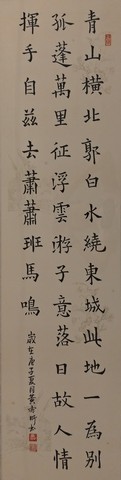 青山橫北郭白水繞東城此地一為別
孤蓬萬里征浮雲游子意落日故人情
揮手自茲去蕭蕭班馬鳴
歲在庚子夏月黃